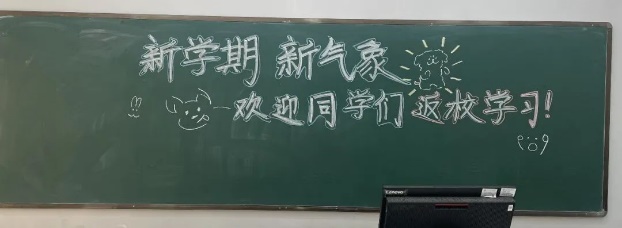 新学期 新气象
欢迎同学们 返校学习!
lenovo